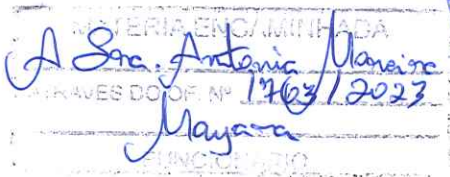 MATERIA ENCAMINHADA
A Sra. Antonia Moreira
ATRAVES DO OF. Nº 1763/2023
Mayara
FUNCIONARIO